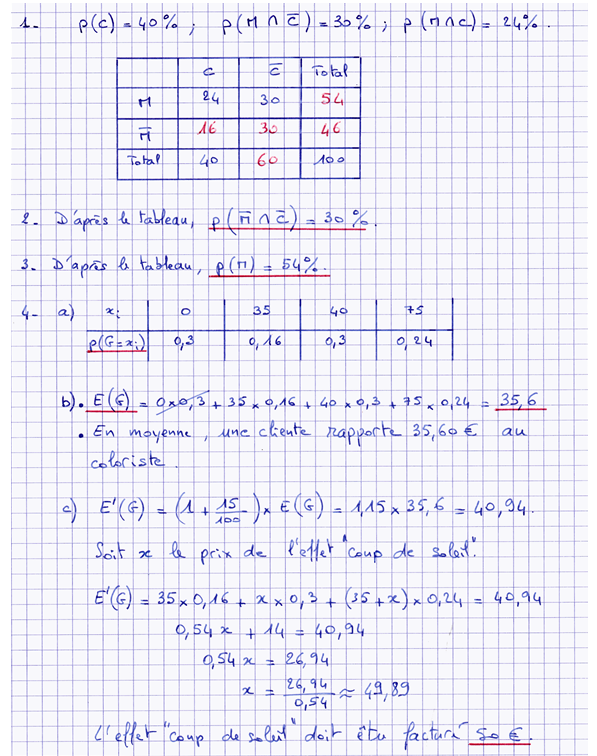 1- p(C) = 40% ; p(M ∩ C̅) = 30% ; p(M∩C) = 24%.
C C̅ Total
M 24 30 54
M̅ 16 30 46
Total 40 60 100
2- D'après le tableau, p(M̅ ∩ C̅) = 30%.
3- D'après le tableau, p(M) = 54%.
4- a) xᵢ 0 35 40 75
p(G=xᵢ) 0,3 0,16 0,3 0,24
b) • E(G) = 0×0,3 + 35×0,16 + 40×0,3 + 75×0,24 = 35,6
• En moyenne, une cliente rapporte 35,60 € au
coloriste.
c) E'(G) = (1 + 15/100) × E(G) = 1,15 × 35,6 = 40,94.
Soit x le prix de l'effet "coup de soleil".
E'(G) = 35×0,16 + x×0,3 + (35+x)×0,24 = 40,94
0,54x + 14 = 40,94
0,54x = 26,94
x = 26,94/0,54 ≈ 49,89
L'effet "coup de soleil" doit être facturé 50 €.